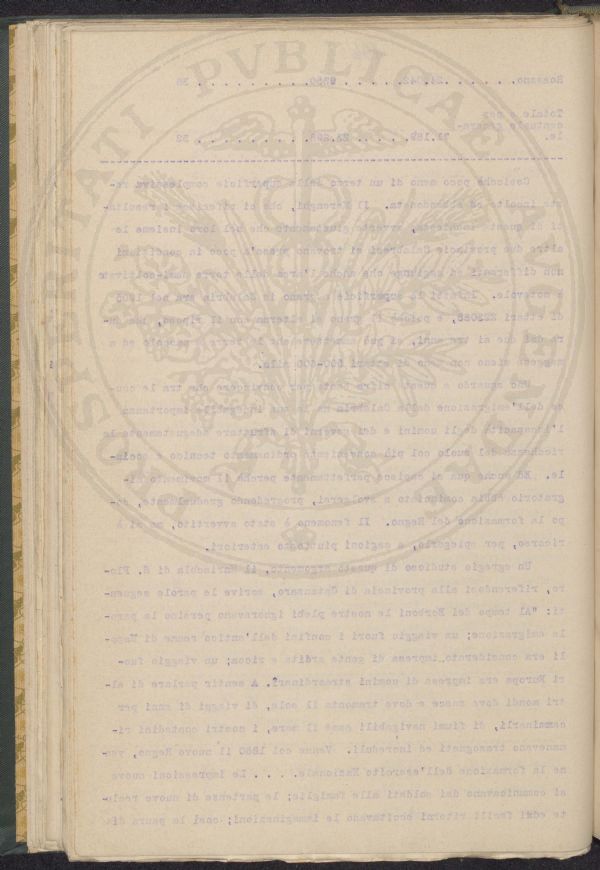 PROSPERITATI PVBLICAE AVGENDAE
Rossano. . . . . . . 24.042. . . . . . 9350. . . . . . . . . . 38
Totale e per
centuale genera-
le. 71.167. . . . . . . . . . . . . . 32
Cosicchè poco meno di un terzo della superficie complessiva re-
sta incolta ed abbandonata. Il Marenghi, che si riferisce i resulta-
ti di questa inchiesta, avverte giustamente che nel loro insieme le
altre due provincie Calabresi si trovano press'a poco in condizioni
non differenti ed aggiunge che anche l'area delle terre semi-coltivate
è notevole. Infatti la superficie a grano in Calabria era nel 1905
di ettari 222088, e poichè il grano si alterna con il riposo, che du-
ra dai due ai tre anni, si può ammettere che le terre a pascolo ed a
maggese siano non meno di ettari 500-600 mila.
Uno sguardo a queste cifre basta per convincere che tra le cau-
se dell'emigrazione della Calabria ha la sua innegabile importanza
l'incapacità degli uomini e dei governi di sfruttare adeguatamente le
ricchezze del suolo col più conveniente ordinamento tecnico e socia-
le. Ed anche qua si capisce perfettamente perchè il movimento mi-
gratorio abbia cominciato a svolgersi, progredendo gradualmente, do-
po la formazione del Regno. Il fenomeno è stato avvertito, ma si è
ricorso, per spiegarlo, a cagioni piuttosto esteriori.
Un egregio studioso di questo argomento, il Marincola di S. Flo-
ro, riferendosi alla provincia di Catanzaro, scrive le parole seguen-
ti: "Al tempo dei Borboni le nostre plebi ignoravano persino la paro-
la emigrazione; un viaggio fuori i confini dell'antico reame di Napo-
li era considerato impresa di gente ardita e ricca; un viaggio fuo-
ri Europa era impresa di uomini straordinari. A sentir parlare di al-
tri mondi dove nasce e dove tramonta il sole, di viaggi di anni per
camminarli, di fiumi navigabili come il mare, i nostri contadini ri-
manevano trasognati ed increduli. Venne col 1860 il nuovo Regno, ven-
ne la formazione dell'esercito Nazionale. . . . Le impressioni nuove
si comunicavano dai soldati alle famiglie; le partenze di nuove reclu-
te ed i facili ritorni eccitavano le immaginazioni; così la paura di